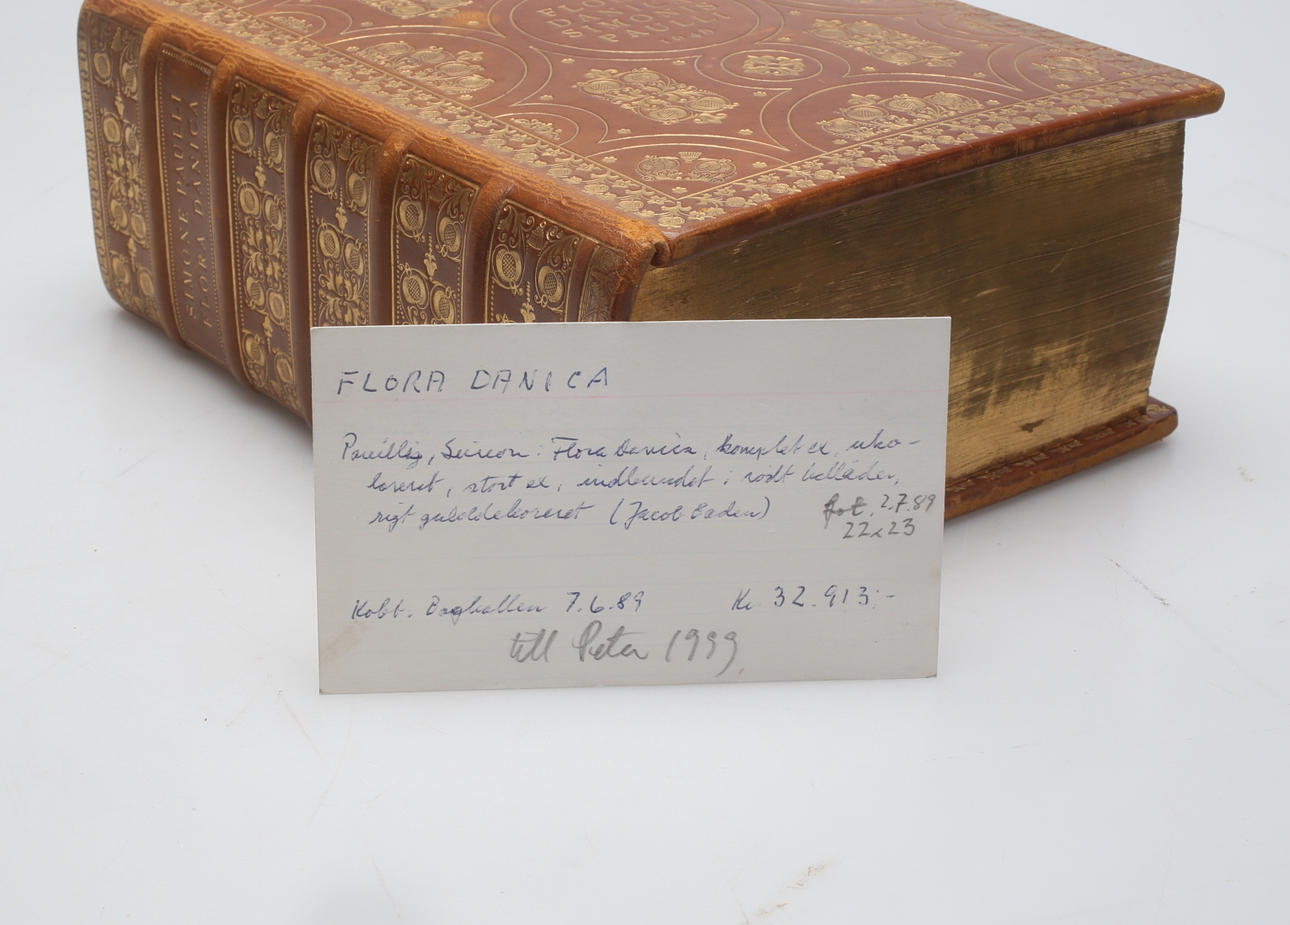 FLORA
DANICA
SIMONIS
PAULLI
SIMONE PAULLI
FLORA DANICA
FLORA DANICA
Paulli, Simon: Flora Danica, komplet ex, uko-
loreret, stort ex, indbundet i rødt helläder,
rigt gulddekoreret (Jacob Baden)
fot. 2.7.89
22x23
Kobt. Boghallen 7.6.89 Kr 32.913:-
till Peter 1999